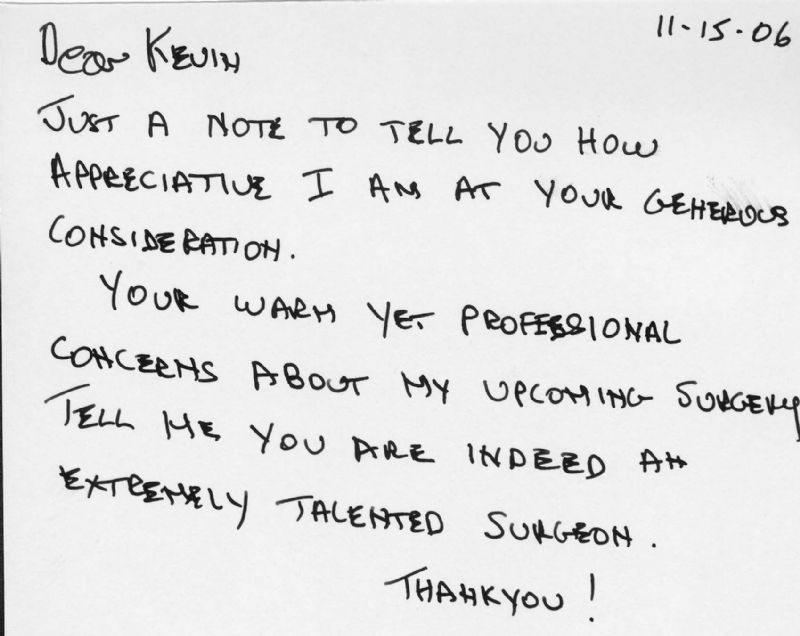 11-15-06
Dear Kevin
JUST A NOTE TO TELL YOU HOW
APPRECIATIVE I AM AT YOUR GENEROUS
CONSIDERATION.
YOUR WARM YET PROFESSIONAL
CONCERNS ABOUT MY UPCOMING SURGERY
TELL ME YOU ARE INDEED AN
EXTREMELY TALENTED SURGEON.
THANKYOU!